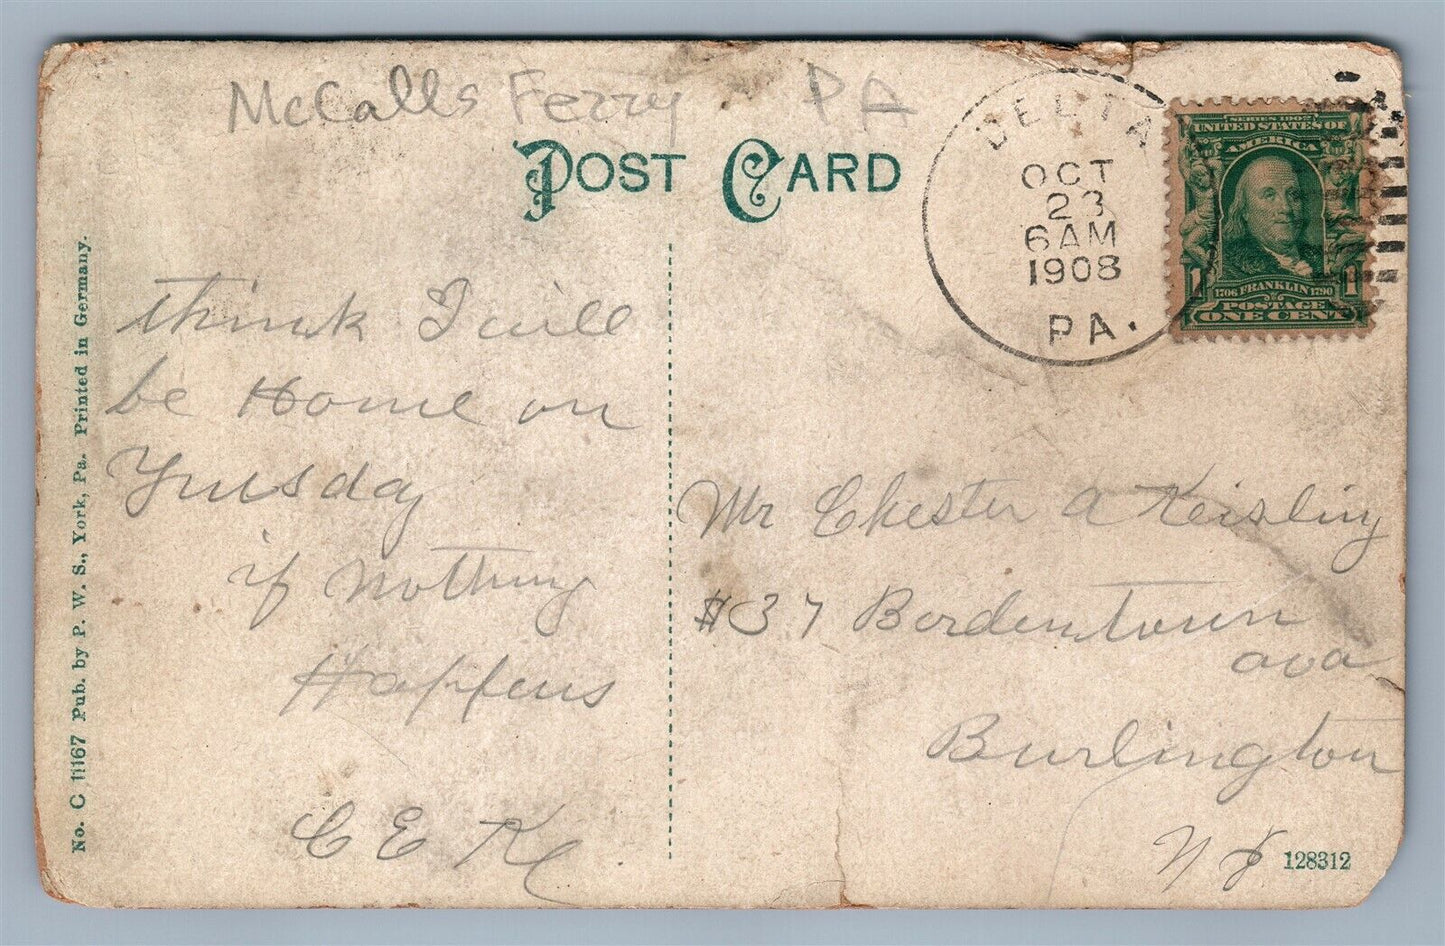 McCalls Ferry PA
POST CARD
DELTA
OCT
23
6AM
1908
PA.
SERIES 1902
UNITED STATES OF
AMERICA
1 1
1706 FRANKLIN 1790
POSTAGE
ONE CENT
No. C 11167 Pub. by P. W. S., York, Pa. Printed in Germany.
think I will
be Home on
Tuesday
if nothing
Happens
C E K
Mr Chester A Keisling
#37 Bordentown
ava
Burlington
N J
128312